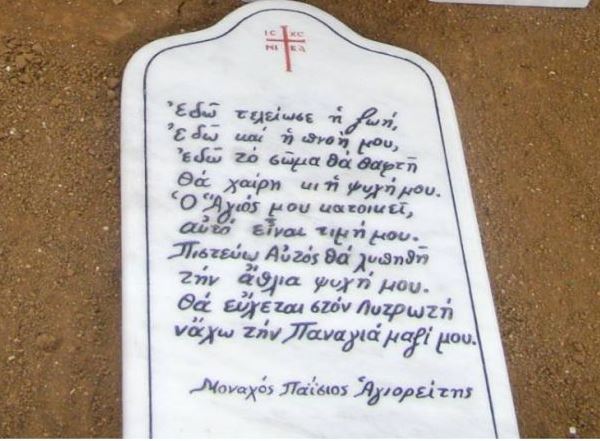 IC XC
NI KA
Ἐδῶ τελείωσε ἡ ζωή,
Ἐδῶ καί ἡ πνοή μου,
ἐδῶ τό σῶμα θά θαφτῆ
θά χαίρη κι ἡ ψυχή μου.
Ὁ Ἅγιός μου κατοικεῖ,
αὐτό εἶναι τιμή μου.
Πιστεύω Αὐτός θά λυπηθῆ
τήν ἄθλια ψυχή μου.
Θά εὔχεται στόν Λυτρωτή
νἄχω τήν Παναγιά μαζί μου.
Μοναχός Παΐσιος Ἁγιορείτης